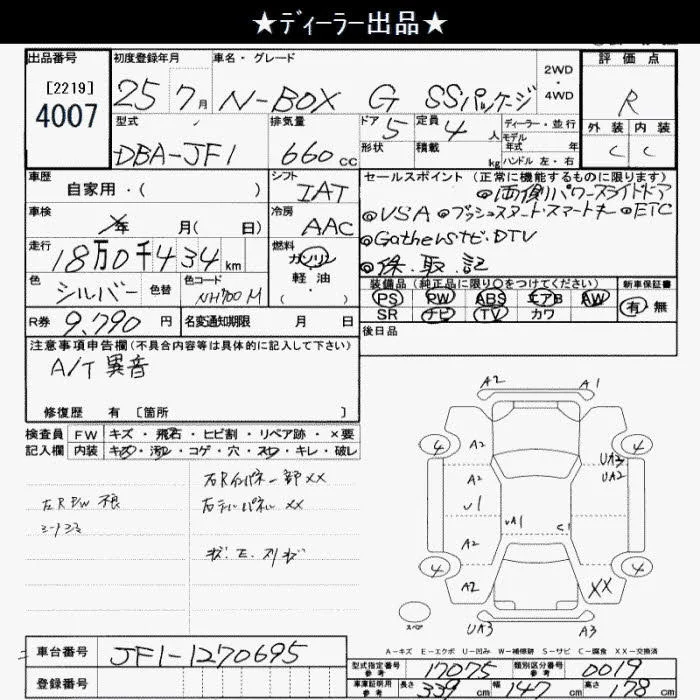 ★ディーラー出品★
出品番号 初度登録年月 車名・グレード 評価点
[2219] 25 7月 N-BOX G SSパッケージ 2WD・4WD R
4007 型式 排気量 ドア 5 定員 4人 ディーラー・並行 外装 内装
DBA-JF1 660cc 形状 積載 kg モデル年式 年 C C
ハンドル 左・右
車歴 シフト セールスポイント(正常に機能するものに限ります)
自家用・( ) IAT ◎両側パワースライドドア
車検 年 月( 日) 冷房 AAC ◎VSA ◎プッシュスタート・スマートキー ◎ETC
走行 18万0千434km 燃料 ガソリン ◎Gathersナビ・DTV
軽油・( ) ◎保・取・記
色 シルバー 色替 色コード NH700M 装備品(純正品に限り○をつけてください) 新車保証書
PS PW ABS エアB AW 有・無
R券 9,790円 名変通知期限 月 日 SR ナビ TV カワ
後日品
注意事項申告欄(不具合内容等は具体的に記入して下さい)
A/T 異音
修復歴 有 [箇所 ]
検査員 FW キズ・飛石・ヒビ割・リペア跡・×要
記入欄 内装 キズ・汚れ・コゲ・穴・スレ・キレ・破レ
右Rインパネ一部××
左R P/W 不良
右テールパネル ××
A2 A1
4 A2 4
A2 UA3
UA2
U1 UA1 C1
A2
4 A2 XX 4
スペア UA3 A3
A-キズ E-エクボ U-凹み W-補修跡 S-サビ C-腐食 XX-交換済
車台番号 JF1-1270695
型式指定番号 参考 17075 類別区分番号 参考 0019
登録番号
車庫証明用 参考 長さ 339cm 幅 147cm 高さ 178cm